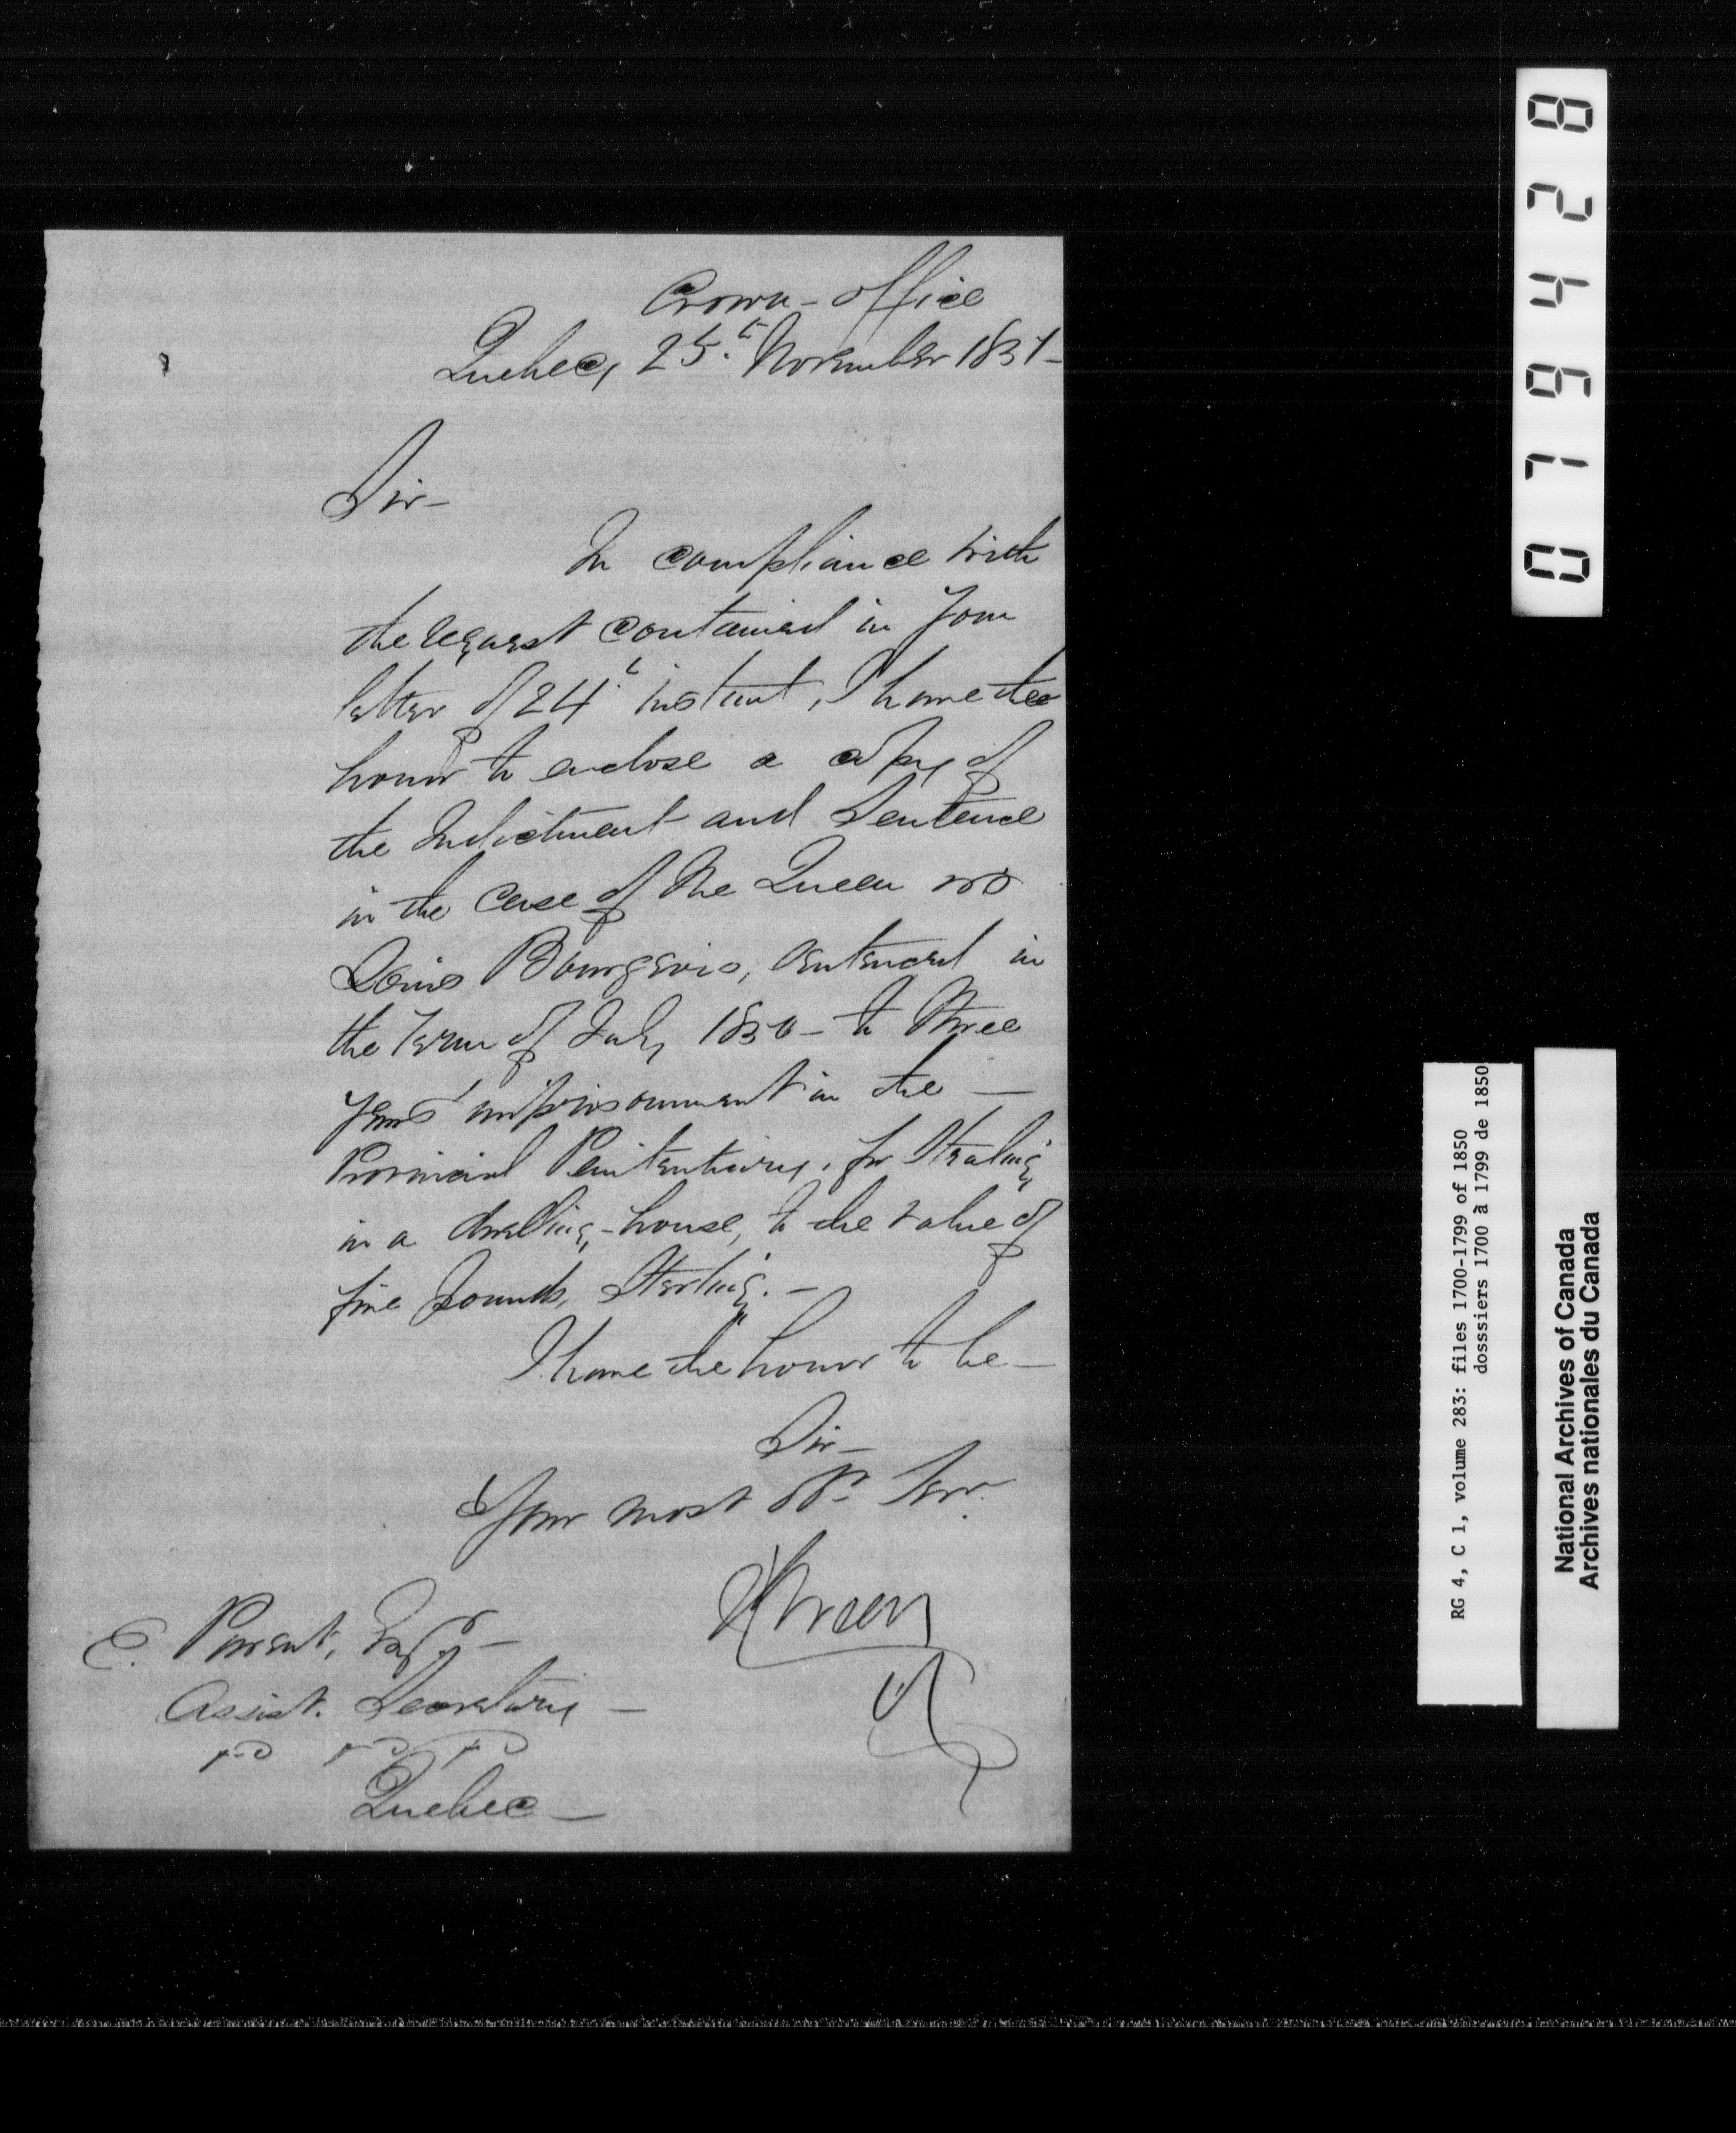 Crown-Office
Quebec, 25.th November 1851-
Sir-
In compliance with
the request contained in your
letter of 24.t instant, I have the
honor to enclose a copy of
the Indictment and Sentence
in the case of The Queen vs
Louis Bourgeois, sentenced in
the Term of July 1850- to three
years' imprisonment in the —
Provincial Penitentiary, for Stealing
in a dwelling-house, to the value of
five pounds, Sterling.-
I have the honor to be-
Sir-
Your most Obt Serv.
E. Parent, Esqr-
Assist. Secretary -
Quebec-
079428
RG 4, C 1, volume 283: files 1700-1799 of 1850
dosssiers 1700 à 1799 de 1850
National Archives of Canada
Archives nationales du Canada